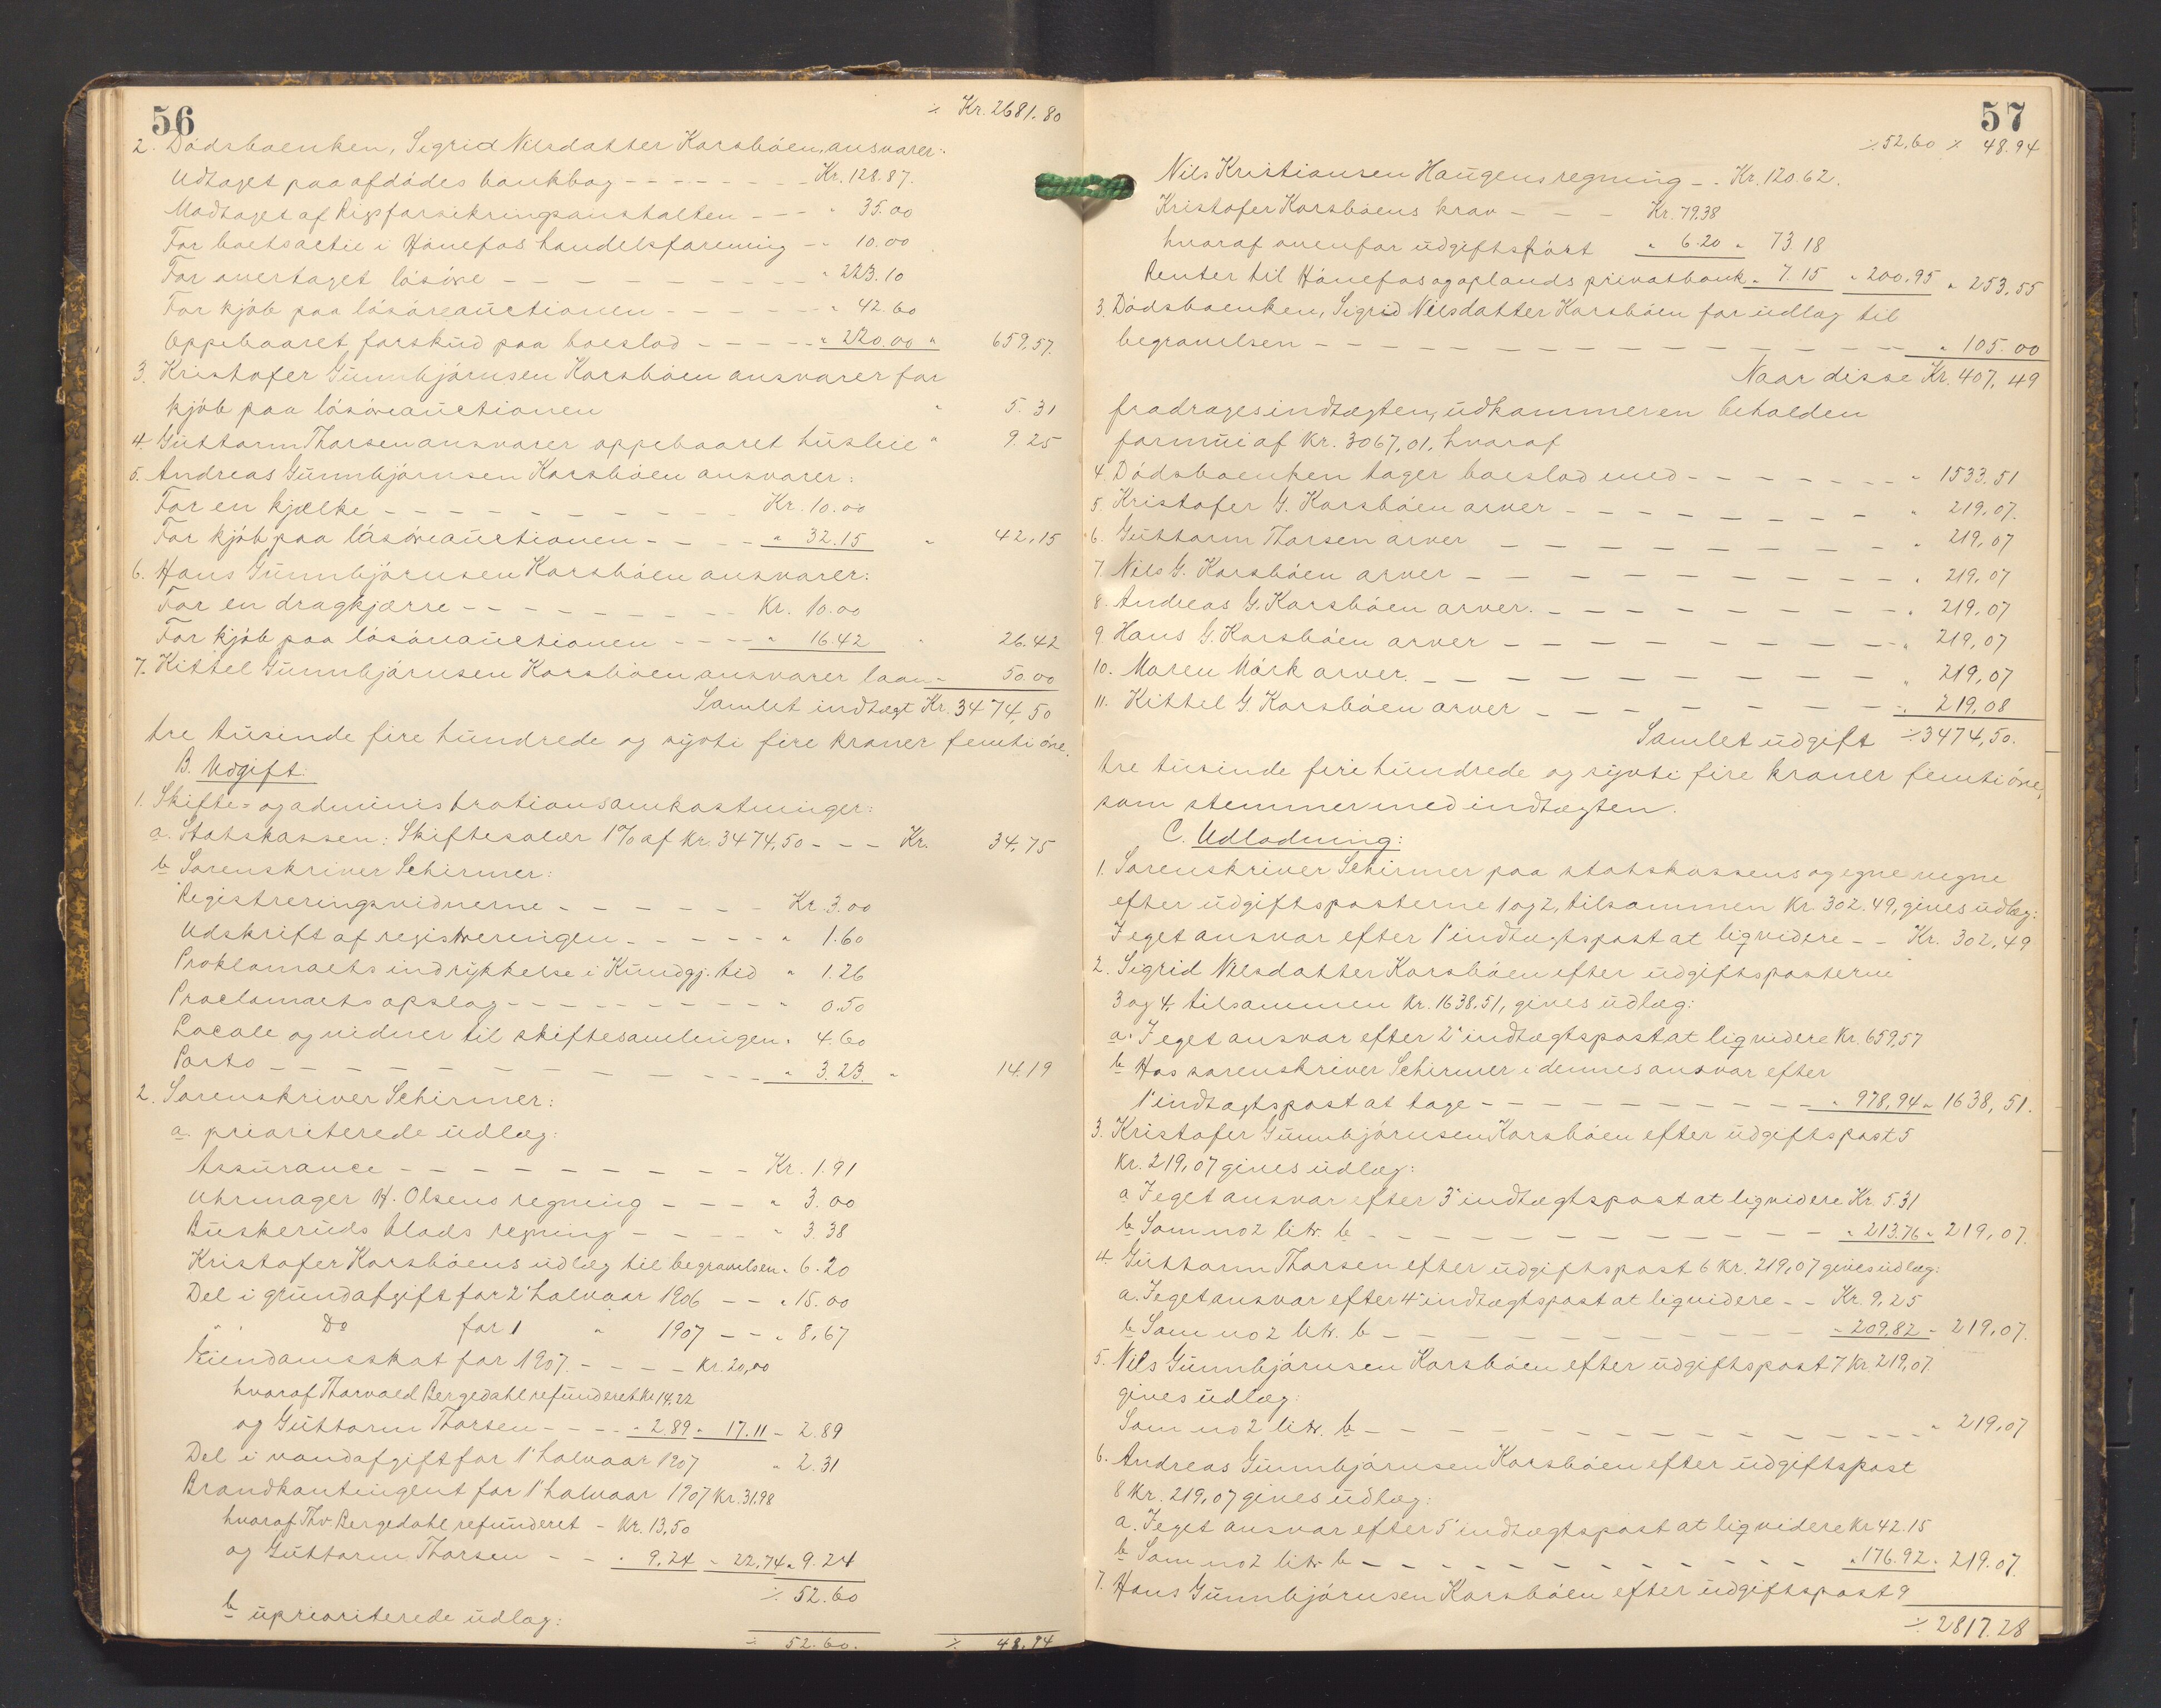 56
⁒ Kr. 2681.80
2. Dødsboenken, Sigrid Nilsdatter Korsbøen, ansvarer:
Udtaget paa afdødes bankbog - - - - - - - Kr. 128.87.
Modtaget af Rigsforsikringsanstalten - - - " 35.00
For boets actie i Hønefos handelsforening - " 10.00
For overtaget løsøre - - - - - - - - " 223.10
For kjøb paa løsøreauctionen - - - - - - " 42.60
Oppebaaret forskud paa boeslod - - - - - " 220.00 " 659,57.
3. Kristofer Gunnbjørnsen Korsbøen ansvarer for
kjøb paa løsøreauctionen " 5.31
4. Guttorm Thorsen ansvarer oppebaaret husleie " 9.25
5. Andreas Gunnbjørnsen Korsbøen ansvarer:
For en kjælke - - - - - - - - - - Kr. 10.00
For kjøb paa løsøreauctionen - - - - " 32.15 " 42,15
6. Hans Gunnbjørnsen Korsbøen ansvarer:
For en dragkjærre - - - - - - - - Kr. 10.00
For kjøb paa løsøreauctionen - - - - " 16.42 " 26.42
7. Kittel Gunnbjørnsen Korsbøen ansvarer laan - 50.00
Samlet indtægt Kr. 3474,50
tre tusinde fire hundrede og sytti fire kroner femti øre.
B. Udgift:
1. Skifte- og administrationsomkostninger:
a. Statskassen: Skiftesalær 1% af Kr. 3474,50 - - - Kr. 34,75
b Sorenskriver Schirmer:
Registreringsvidnerne - - - - - - Kr. 3.00
Udskrift af registreringen - - - - - " 1.60
Proklamaets indrykkelse i Kundgj. tid " 1.26
Proclamaets opslag - - - - - - - - - " 0.50
Locale og vidner til skiftesamlingen " 4.60
Porto - - - - - - - - - - - - " 3.23. " 14.19
2. Sorenskriver Schirmer:
a. prioriterede udlæg:
Assurance - - - - - - - - - - Kr. 1.91
Uhrmager H. Olsens regning - - - " 3.00
Buskeruds blads regning - - - - " 3.38
Kristofer Korsbøens udlæg til begravelsen " 6.20
Del i grundafgift for 2' halvaar 1906 - - " 15.00
" " Do for 1 " 1907 - - " 8,67
Eiendomsskat for 1907. - - - - Kr. 20,00
hvoraf Thorvald Bergedahl refunderet Kr 14.22
og Guttorm Thorsen - - - - " 2.89 " 17.11 - 2.89
Del i vandafgift for 1' halvaar 1907 " 2.31
Brandkontingent for 1' halvaar 1907 Kr. 31.98
hvoraf Thv. Bergedahl refunderet - Kr. 13,50
og Guttorm Thorsen - - " 9,24 - 22,74 " 9.24
⁒ 52.60
b upriorterede udlæg:
⁒ 52.60. ⁒ 48,94
57
⁒ 52,60 ⁒ 48.94
Nils Kristiansen Haugens regning - . Kr. 120.62.
Kristofer Korsbøens krav - - - Kr. 79.38
hvoraf ovenfor udgiftsført " 6.20 " 73.18
Renter til Hønefos og oplands privatbank " 7.15 " 200,95 " 253,55
3. Dødsboenken, Sigrid Nilsdatter Korsbøen for udlæg til
begravelsen - - - - - - - - - - - - - - - " 105.00
Naar disse Kr. 407,49
fradrages indtægten, udkommer en beholden
formue af Kr. 3067,01, hvoraf
4. Dødsboenken tager boeslod med - - - - - - - " 1533.51
5. Kristofer G. Korsbøen arver - - - - - - - - " 219,07.
6. Guttorm Thorsen arver - - - - - - - - - " 219,07
7 Nils G. Korsbøen arver - - - - - - - - - - " 219,07
8. Andreas G. Korsbøen arver. - - - - - - - - " 219,07
9. Hans G. Korsbøen arver - - - - - - - - - " 219,07
10. Maren Mørk arver. - - - - - - - - - - " 219,07
11. Kittel G. Korsbøen arver - - - - - - - - - " 219,08
Samlet udgift ⁒ 3474,50.
tre tusinde fire hundrede og sytti fire kroner femti øre,
som stemmer med indtægten.
C. Udlodning:
1. Sorenskriver Schirmer paa statskassens og egne vegne
efter udgiftsposterne 1 og 2, tilsammen Kr. 302.49, gives udlæg:
I eget ansvar efter 1' indtægtspost at liqvidere - - Kr. 302,49
2. Sigrid Nilsdatter Korsbøen efter udgiftsposterne
3 og 4, tilsammen Kr. 1638,51, gives udlæg:
a. I eget ansvar efter 2' indtægtspost at liqvidere Kr. 659,57
b Hos sorenskriver Schirmer i dennes ansvar efter
1' indtægtspost at tage - - - - - - - - - - - " 978,94 " 1638,51.
3. Kristofer Gunnbjørnsen Korsbøen efter udgiftspost 5
Kr. 219,07 gives udlæg:
a I eget ansvar efter 3' indtægtspost at liqvidere Kr. 5.31
b Som no 2 litr. b - - - - - - - - - - - - " 213.76 " 219,07.
4. Guttorm Thorsen efter udgiftspost 6 Kr. 219,07 gives udlæg:
a. I eget ansvar efter 4' indtægtspost at liqvidere - - Kr. 9,25
b Som no 2 litr. b - - - - - - - - - - - - " 209.82 - 219,07.
5. Nils Gunnbjørnsen Korsbøen efter udgiftspost 7 Kr 219,07.
gives udlæg:
Som no 2 litr. b - - - - - - - - - - - - - - - " 219,07
6. Andreas Gunnbjørnsen Korsbøen efter udgiftspost
8 Kr. 219,07 gives udlæg:
a. I eget ansvar efter 5' indtægtspost at liqvidere Kr 42.15
b Som no 2 litr b - - - - - - - - - - - - " 176.92 " 219.07.
7. Hans Gunnbjørnsen Korsbøen efter udgiftspost 9
⁒ 2817.28